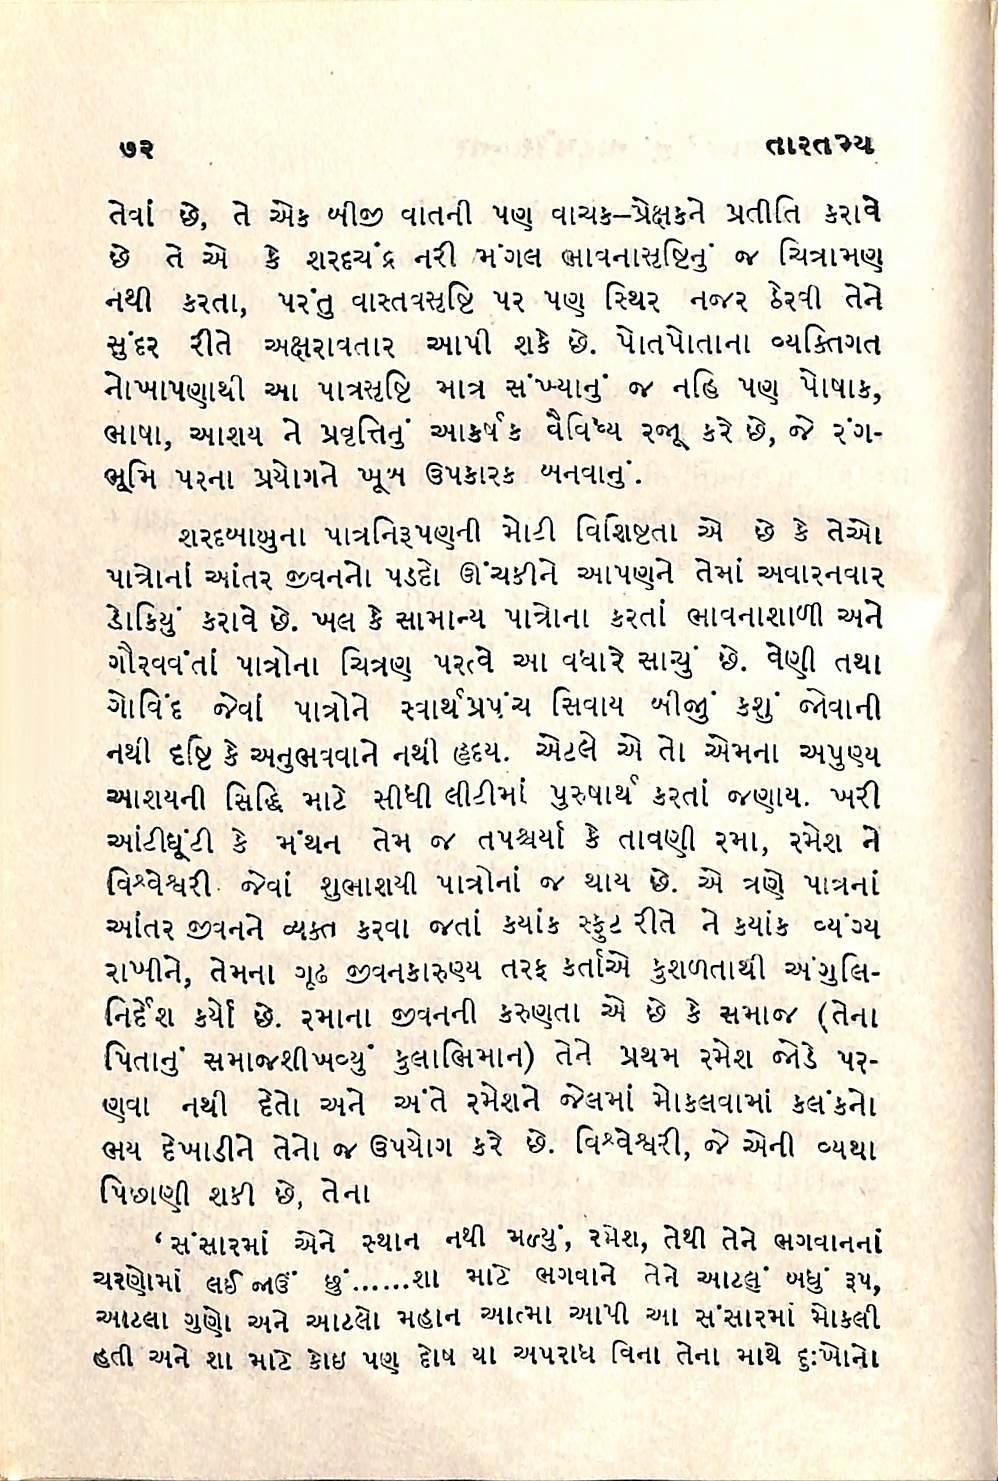 ૭૨ તારતમ્ય
તેવાં છે, તે એક બીજી વાતની પણ વાચક–પ્રેક્ષકને પ્રતીતિ કરાવે
છે તે એ કે શરદચંદ્ર નરી મંગલ ભાવનાસૃષ્ટિનું જ ચિત્રામણ
નથી કરતા, પરંતુ વાસ્તવસૃષ્ટિ પર પણ સ્થિર નજર ઠેરવી તેને
સુંદર રીતે અક્ષરાવતાર આપી શકે છે. પોતપોતાના વ્યક્તિગત
નોખાપણાથી આ પાત્રસૃષ્ટિ માત્ર સંખ્યાનું જ નહિ પણ પોષાક,
ભાષા, આશય ને પ્રવૃત્તિનું આકર્ષક વૈવિધ્ય રજૂ કરે છે, જે રંગ-
ભૂમિ પરના પ્રયોગને ખૂબ ઉપકારક બનવાનું.
શરદબાબુના પાત્રનિરૂપણની મોટી વિશિષ્ટતા એ છે કે તેઓ
પાત્રોનાં આંતર જીવનનો પડદો ઊંચકીને આપણને તેમાં અવારનવાર
ડોકિયું કરાવે છે. ખલ કે સામાન્ય પાત્રોના કરતાં ભાવનાશાળી અને
ગૌરવવંતાં પાત્રોના ચિત્રણ પરત્વે આ વધારે સાચું છે. વેણી તથા
ગોવિંદ જેવાં પાત્રોને સ્વાર્થપ્રપંચ સિવાય બીજું કશું જોવાની
નથી દૃષ્ટિ કે અનુભવવાને નથી હૃદય. એટલે એ તો એમના અપુણ્ય
આશયની સિદ્ધિ માટે સીધી લીટીમાં પુરુષાર્થ કરતાં જણાય. ખરી
આંટીઘૂંટી કે મંથન તેમ જ તપશ્ચર્યા કે તાવણી રમા, રમેશ ને
વિશ્વેશ્વરી જેવાં શુભાશયી પાત્રોનાં જ થાય છે. એ ત્રણે પાત્રનાં
આંતર જીવનને વ્યક્ત કરવા જતાં કયાંક સ્ફુટ રીતે ને કયાંક વ્યંગ્ય
રાખીને, તેમના ગૂઢ જીવનકારુણ્ય તરફ કર્તાએ કુશળતાથી અંગુલિ-
નિર્દેશ કર્યો છે. રમાના જીવનની કરુણતા એ છે કે સમાજ (તેના
પિતાનું સમાજશીખવ્યું કુલાભિમાન) તેને પ્રથમ રમેશ જોડે પર-
ણવા નથી દેતો અને અંતે રમેશને જેલમાં મોકલવામાં કલંકનો
ભય દેખાડીને તેનો જ ઉપયોગ કરે છે. વિશ્વેશ્વરી, જે એની વ્યથા
પિછાણી શકી છે, તેના
‘સંસારમાં એને સ્થાન નથી મળ્યું, રમેશ, તેથી તેને ભગવાનનાં
ચરણોમાં લઈ જાઉં છું......શા માટે ભગવાને તેને આટલું બધું રૂપ,
આટલા ગુણો અને આટલો મહાન આત્મા આપી આ સંસારમાં મોકલી
હતી અને શા માટે કોઇ પણ દોષ યા અપરાધ વિના તેના માથે દુઃખોનો